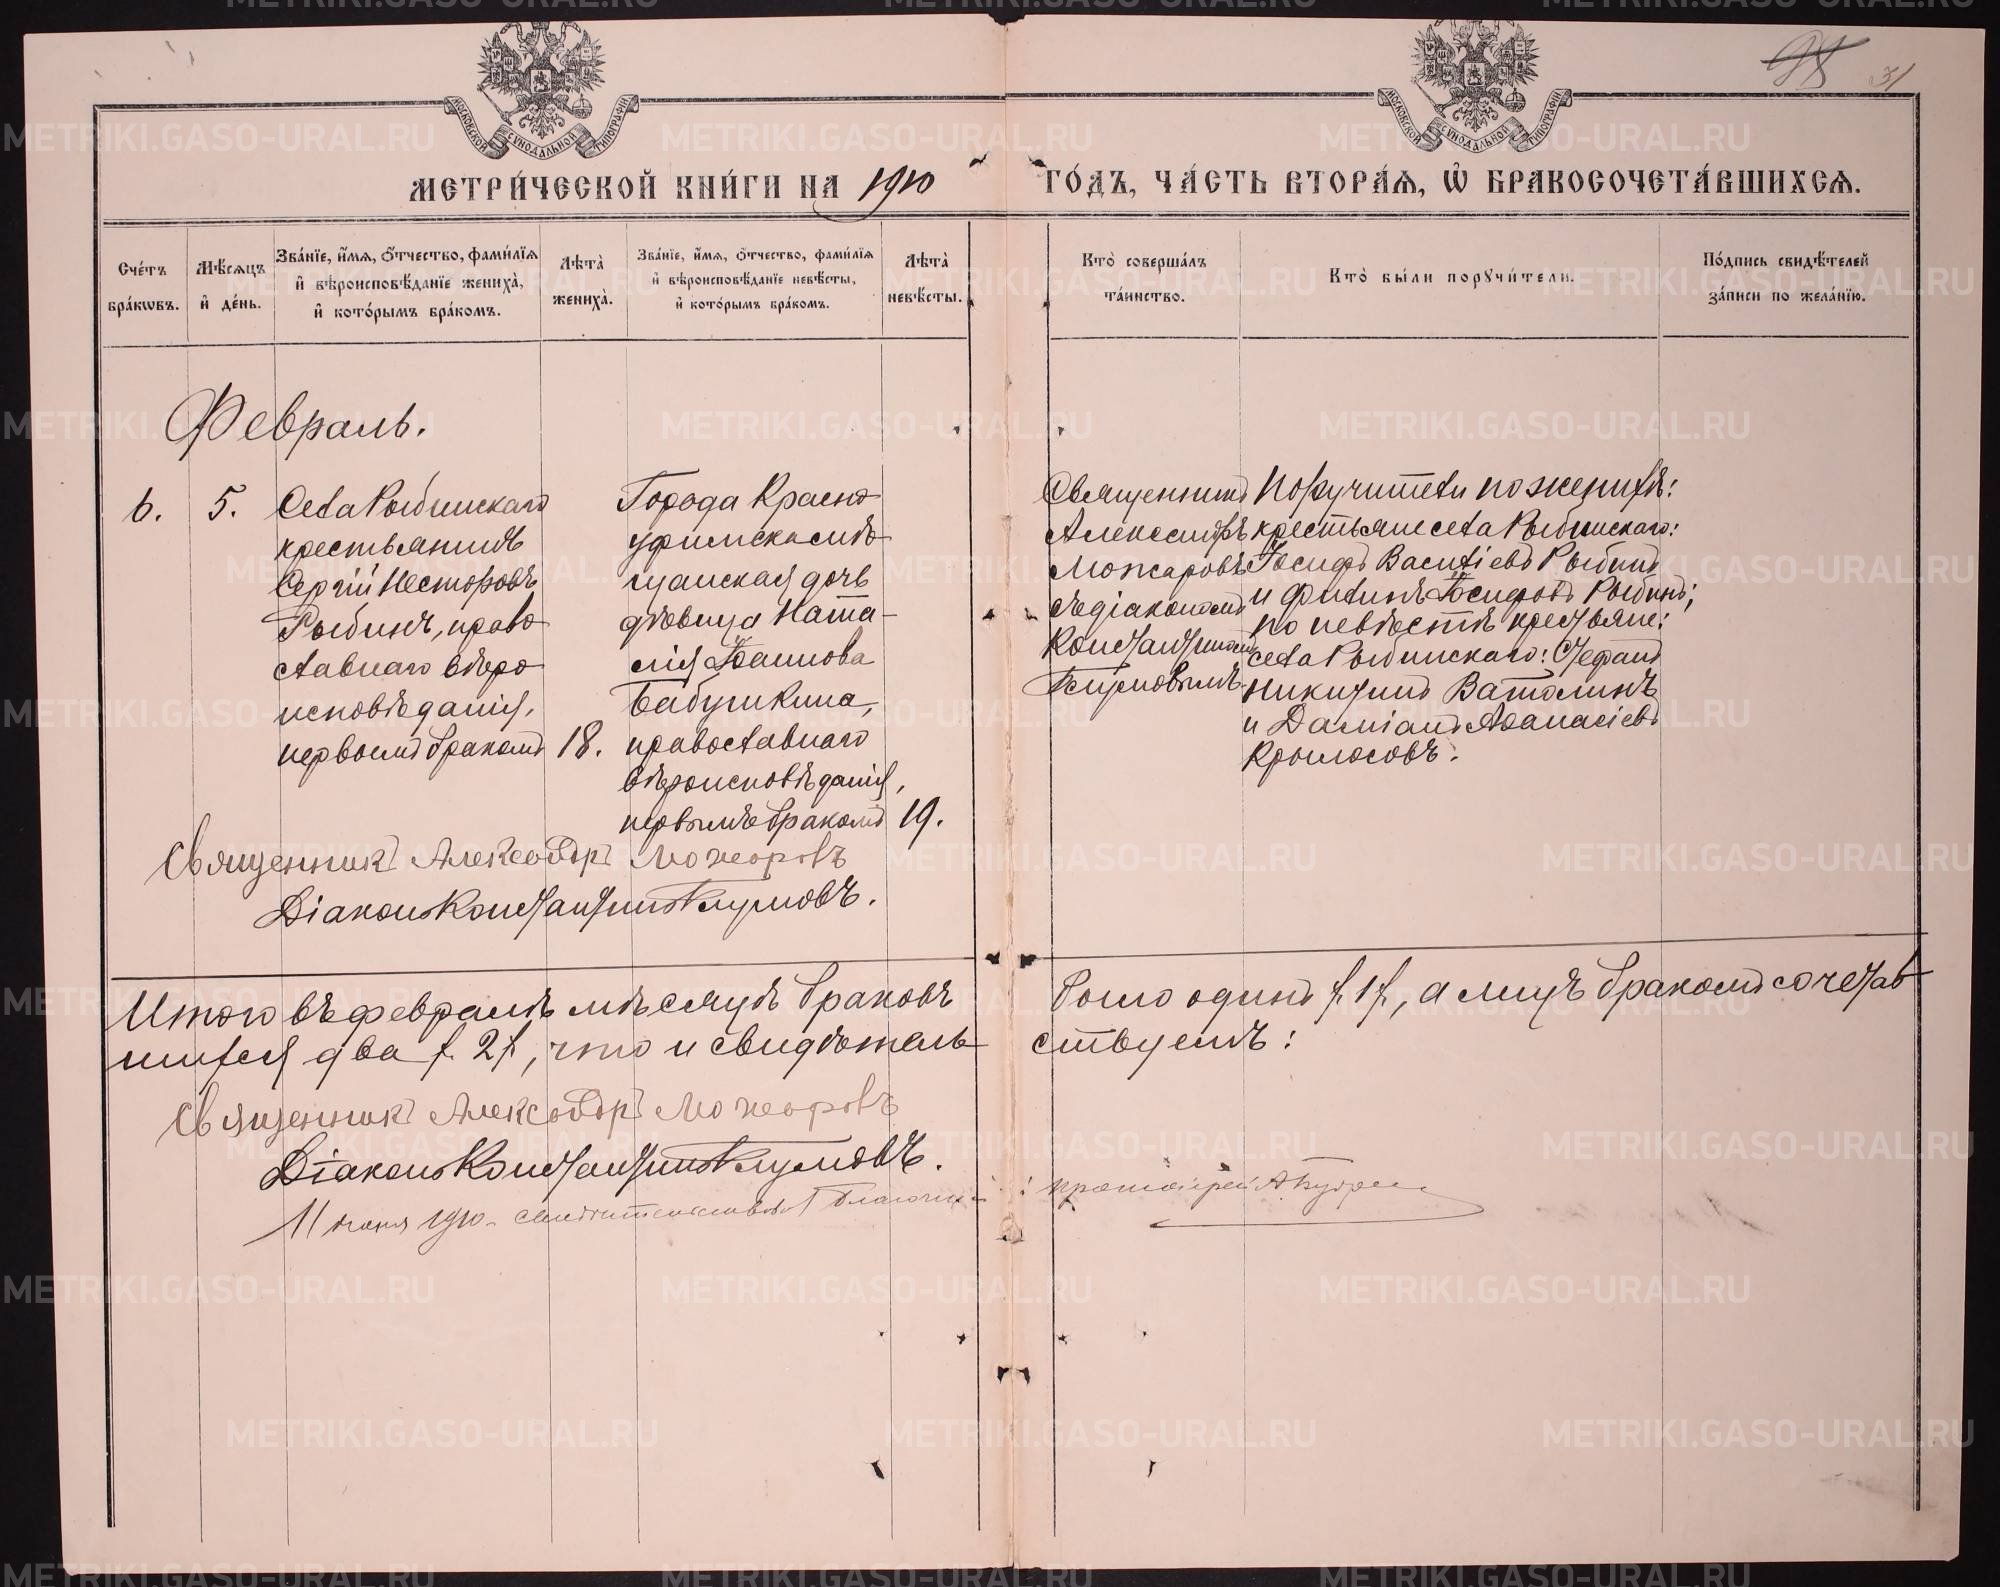 31
МОСКОВСКОЙ СѴНОДАЛЬНОЙ ТИПОГРАФІИ
МОСКОВСКОЙ СѴНОДАЛЬНОЙ ТИПОГРАФІИ
МЕТРИ́ЧЕСКОЙ КНИ́ГИ НА 1910 ГО́ДЪ, ЧА́СТЬ ВТОРА́Ѧ, Ѽ БРАКОСОЧЕТА́ВШИХСѦ.
Сче́тъ бра́кѡвъ.
Мѣ́сѧцъ и҆ де́нь.
Зва́нїе, и҆́мѧ, ѻ҆́тчество, фами́лїѧ и҆ вѣроисповѣ́данїе жениха̀, и҆ кото́рымъ бра́комъ.
Лѣта̀ жениха̀.
Зва́нїе, и҆́мѧ, ѻ҆́тчество, фами́лїѧ и҆ вѣроисповѣ́данїе невѣ́сты, и҆ кото́рымъ бра́комъ.
Лѣта̀ невѣ́сты.
Кто̀ соверша́лъ та́инство.
Кто̀ бы́ли порꙋчи́тели.
По́дпись свидѣ́телей за́писи по жела́нїю.
Февраль.
6.
5.
Села Рыбинскаго
крестьянинъ
Сергій Несторовъ
Рыбинъ, право
славнаго вѣро
исповѣданія,
первымъ бракомъ
18.
Города Красно
уфимска мѣ
щанская дочь
дѣвица Ната-
лія Іоаннова
Бабушкина,
православнаго
вѣроисповѣданія,
первымъ бракомъ
19.
Священникъ
Александръ
Можаровъ
съ діакономъ
Константиномъ
Поручители по женихѣ:
крестьяне села Рыбинскаго:
Іосифъ Василіевъ Рыбинъ
и Филипъ Іосифовъ Рыбинъ;
по невѣстѣ крестьяне:
села Рыбинскаго: Стефанъ
Никитинъ Ватолинъ
и Даміанъ Аѳанасіевъ
Крылосовъ.
Священникъ Александръ Можаровъ
Діаконъ Константинъ
Итого въ февралѣ мѣсяцѣ браковъ было одинъ /1/, а лицъ бракомъ сочетав
шихся два /2/, что и свидѣтель ствуемъ:
Священникъ Александръ Можаровъ
Діаконъ Константинъ
11 1910 Благочин протоіерей А.
METRIKI.GASO-URAL.RU